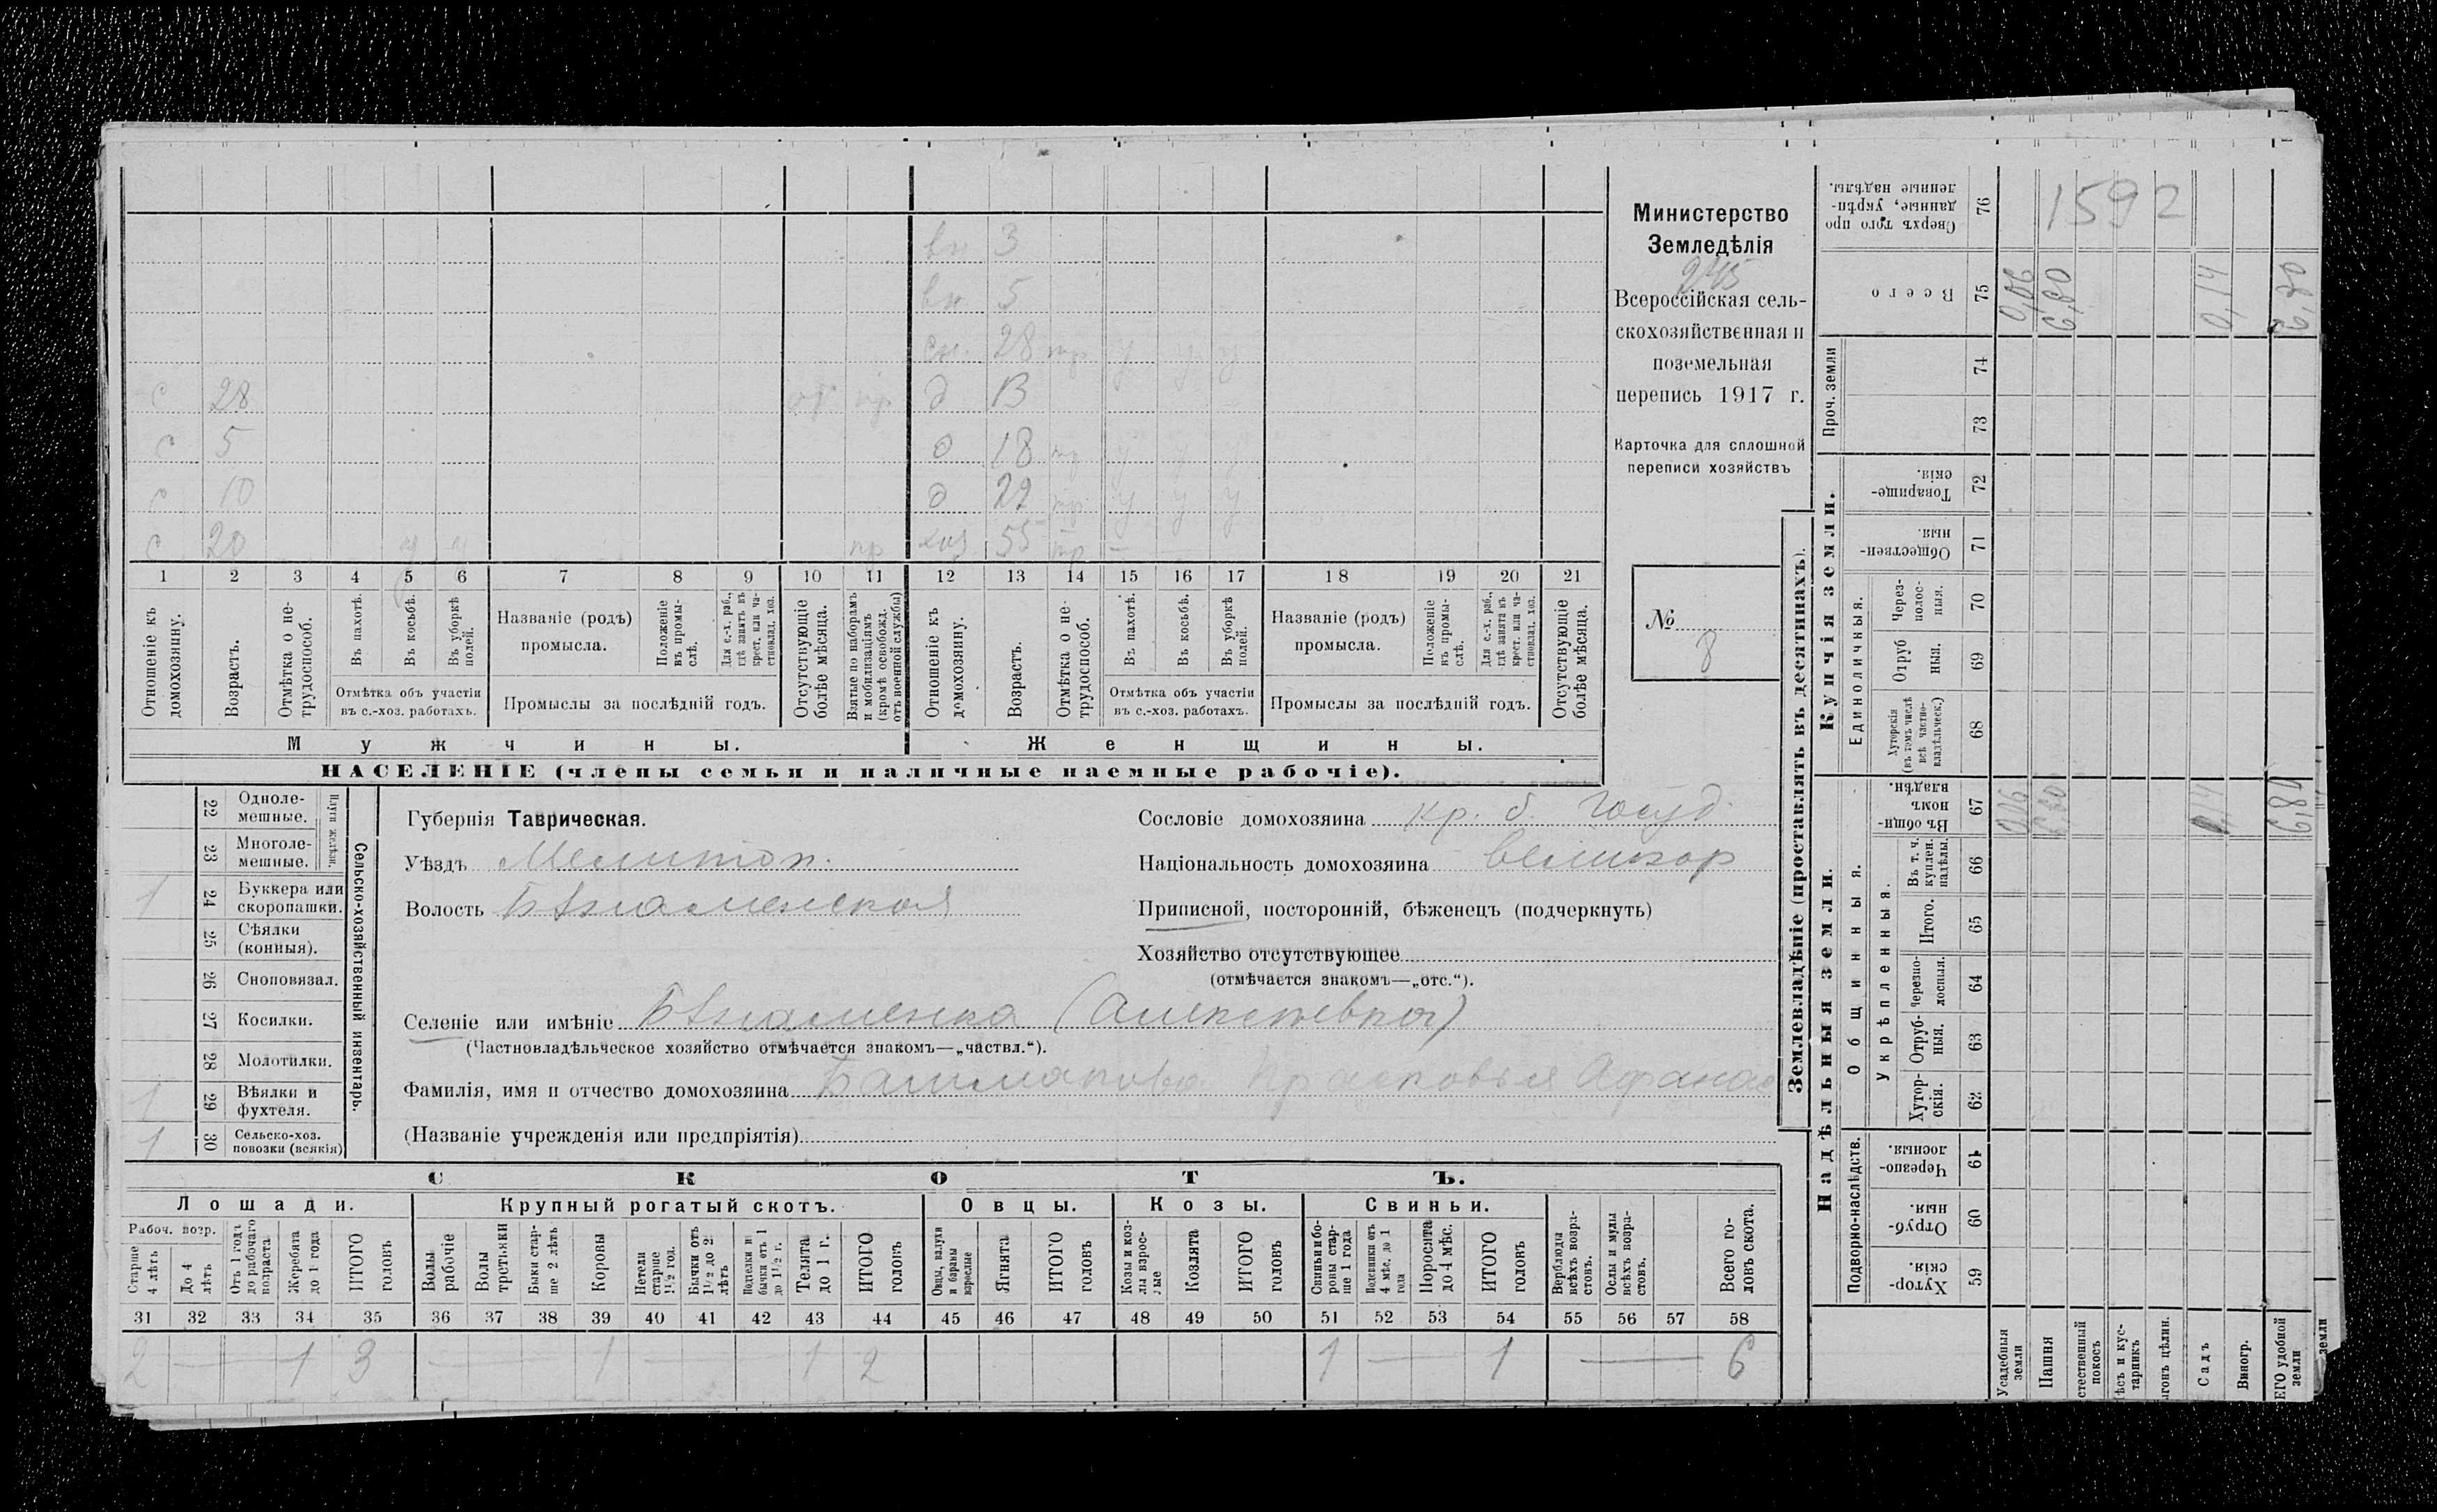 вн 3
вн 5
сн. 28 тр у у у
с 28 пр д 13
с 5 д 18 тр у у у
с 10 д 22 тр у у у
с 20 у у пр хоз 55 тр —
1 2 3 4 5 6 7 8 9 10 11 12 13 14 15 16 17 18 19 20 21
Отношеніе къ домохозяину.
Возрастъ.
Отмѣтка о нетрудоспособ.
Въ пахотѣ.
Въ косьбѣ.
Въ уборкѣ полей.
Отмѣтка объ участіи въ с.-хоз. работахъ.
Названіе (родъ) промысла.
Положеніе въ промыслѣ.
Для с.-х. раб., гдѣ занятъ въ крест. или частновлад. хоз.
Промыслы за послѣдній годъ.
Отсутствующіе болѣе мѣсяца.
Взятые по наборамъ и мобилизаціямъ (кромѣ освобожд. отъ военной службы)
Отношеніе къ домохозяину.
Возрастъ.
Отмѣтка о нетрудоспособ.
Въ пахотѣ.
Въ косьбѣ.
Въ уборкѣ полей.
Отмѣтка объ участіи въ с.-хоз. работахъ.
Названіе (родъ) промысла.
Положеніе въ промыслѣ.
Для с.-х. раб., гдѣ занята въ крест. или частновлад. хоз.
Промыслы за послѣдній годъ.
Отсутствующіе болѣе мѣсяца.
Мужчины. Женщины.
НАСЕЛЕНІЕ (члены семьи и наличные наемные рабочіе).
Министерство
Земледѣлія
245
Всероссійская сель-
скохозяйственная и
поземельная
перепись 1917 г.
Карточка для сплошной
переписи хозяйствъ
№
8
22 Одноле-мешные.
23 Многоле-мешные.
Плуги желѣзн.
1 24 Буккера или скоропашки.
25 Сѣялки (конныя).
26 Сноповязал.
27 Косилки.
28 Молотилки.
1 29 Вѣялки и фухтеля.
1 30 Сельско-хоз. повозки (всякія)
Сельско-хозяйственный инвентарь.
Губернія Таврическая.
Уѣздъ Мелитоп.
Волость Бѣламенская
Сословіе домохозяина кр. б. госуд.
Національность домохозяина великор
Приписной, посторонній, бѣженецъ (подчеркнуть)
Хозяйство отсутствующее
(отмѣчается знакомъ—„отс.“).
Селеніе или имѣніе (Алексѣевка)
(Частновладѣльческое хозяйство отмѣчается знакомъ—„частвл.“).
Фамилія, имя и отчество домохозяина Башмакова Прасковья Афанас
(Названіе учрежденія или предпріятія)
СКОТЪ.
Лошади. Крупный рогатый скотъ. Овцы. Козы. Свиньи.
Рабоч. возр.
Старше 4 лѣтъ
До 4 лѣтъ
Отъ 1 года до рабочаго возраста
Жеребята до 1 года
ИТОГО головъ
Волы рабочіе
Волы третьяки
Быки старше 2 лѣтъ
Коровы
Нетели старше 1½ год.
Бычки отъ 1½ до 2 лѣтъ
Подтелки и бычки отъ 1 до 1½ г.
Телята до 1 г.
ИТОГО головъ
Овцы, валухи и бараны взрослые
Ягнята
ИТОГО головъ
Козы и козлы взрослые
Козлята
ИТОГО головъ
Свиньи и боровы старше 1 года
Подсвинки отъ 4 мѣс. до 1 года
Поросята до 4 мѣс.
ИТОГО головъ
Верблюды всѣхъ возрастовъ.
Ослы и мулы всѣхъ возрастовъ.
Всего головъ скота.
31 32 33 34 35 36 37 38 39 40 41 42 43 44 45 46 47 48 49 50 51 52 53 54 55 56 57 58
2 — 1 3 — 1 — 1 2 1 — 1 — 6
Землевладѣніе (проставлять въ десятинахъ).
Сверхъ того проданные, укрѣпленные надѣлы. 76 1592
Всего 75 0,06 6,60 0,14 6,80
Проч. земли 74 73
Купчія земли.
Товарищескія. 72
Общественныя. 71
Единоличныя.
Черезполосныя. 70
Отрубныя. 69
Хуторскія (въ томъ числѣ всѣ частновладѣльческ.) 68
Надѣльныя земли.
Общинныя.
Въ общинномъ владѣн. 67 0,06 6,60 0,14 6,80
Укрѣпленныя.
Въ т. ч. куплен. надѣлы. 66
Итого. 65
Черезполосныя. 64
Отрубныя. 63
Хуторскія. 62
Подворно-наслѣдств.
Черезполосныя. 61
Отрубныя. 60
Хуторскія. 59
Усадебныя земли
Пашня
стественный покосъ
ѣсъ и кустарникъ
ыгонъ цѣлин.
Садъ
Виногр.
ЕГО удобной земли
земли